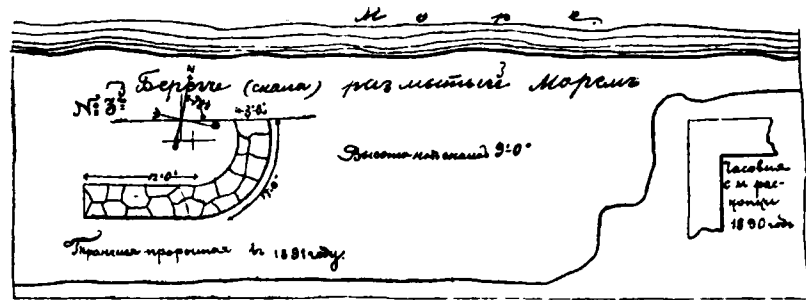 Море.
Берегъ (скала) размытый моремъ
№ 3й
3'-0"
12'-0"
17'-0"
Высота надъ скалой 9'-0"
Часовня
и рас-
копки
1890 года
Траншея прорытая въ 1891 году.